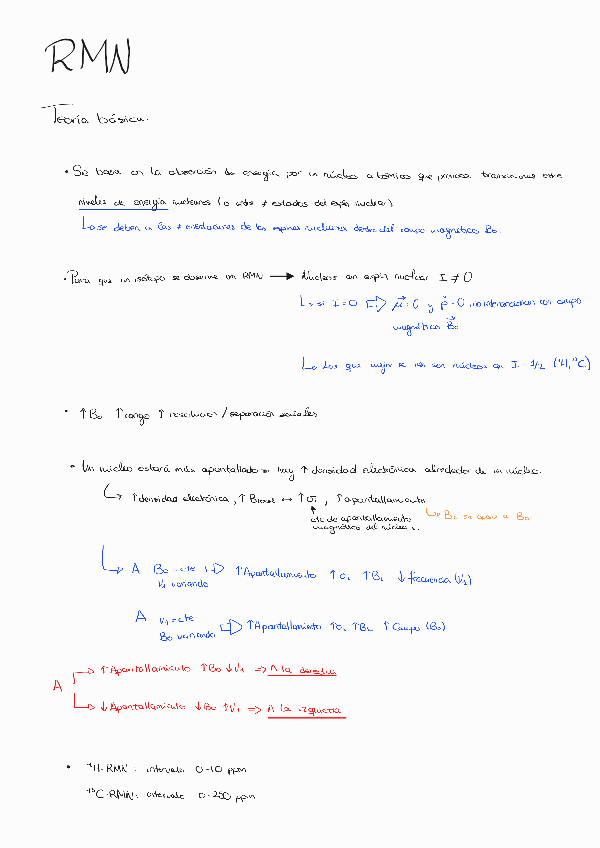 RMN
Teoría básica.
• Se basa en la absorción de energía por un núcleo atómico que provoca transiciones entre
niveles de energía nucleares (o entre ≠ estados del espín nuclear)
↳ se deben a las ≠ orientaciones de los espines nucleares dentro del campo magnético B₀.
• Para que un isótopo se observe en RMN → Núcleos con espín nuclear I ≠ 0
↳ si I=0 ⇨ μ⃗=0 y p⃗=0, no interaccionan con campo
magnético B⃗₀
↳ Los que mejor se ven son núcleos con I = 1/2 (¹H, ¹³C)
• ↑B₀ ↑rango ↑resolución / separación señales
• Un núcleo estará más apantallado si hay ↑ densidad electrónica alrededor de un núcleo.
↳ ↑densidad electrónica, ↑B ↔ ↑σᵢ, ↑apantallamiento
cte de apantallamiento ↳ BL se opone a B₀
magnético del núcleo i.
↳ A B₀=cte ⇨ ↑Apantallamiento ↑σᵢ ↑BL ↓frecuencia (ν₁)
ν₁ variando
A ν₁=cte ⇨ ↑Apantallamiento ↑σᵢ ↑BL ↑Campo (B₀)
B₀ variando
A → ↑Apantallamiento ↑B₀ ↓ν₁ ⇒ A la derecha
→ ↓Apantallamiento ↓B₀ ↑ν₁ ⇒ A la izquierda
• ¹H-RMN: intervalo 0-10 ppm
¹³C-RMN: intervalo 0-250 ppm